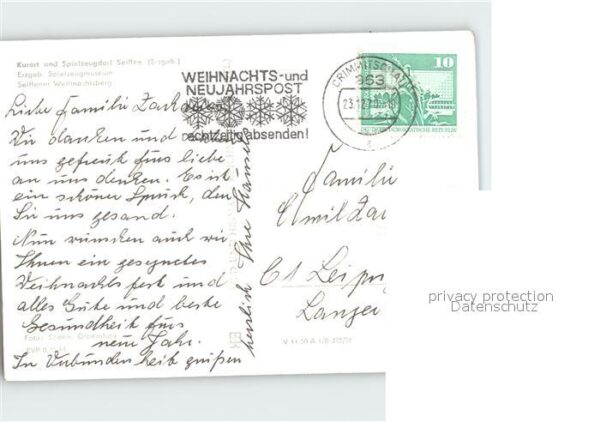 Kurort und Spielzeugdorf Seiffen (Erzgeb.)
Erzgeb. Spielzeugmuseum
Seiffener Weihnachtsberg
WEIHNACHTS-und
NEUJAHRSPOST
rechtzeitig absenden!
CRIMMITSCHAU
963
23.12.
10
DEUTSCHE DEMOKRATISCHE REPUBLIK
Liebe Familie
Wir danken und
uns gefreut fürs liebe
an uns denken. Es ist
ein schöner Spruch, den
Sie uns gesand.
Nun wünschen auch wir
Ihnen ein gesegnetes
Weihnachtsfest und
alles Gute und beste
Gesundheit fürs
neue Jahr.
In Verbundenheit grüßen
herzlich Ihre
Familie
C1 Leipzi
Foto:
V 11 50 A 1/B
privacy protection
Datenschutz